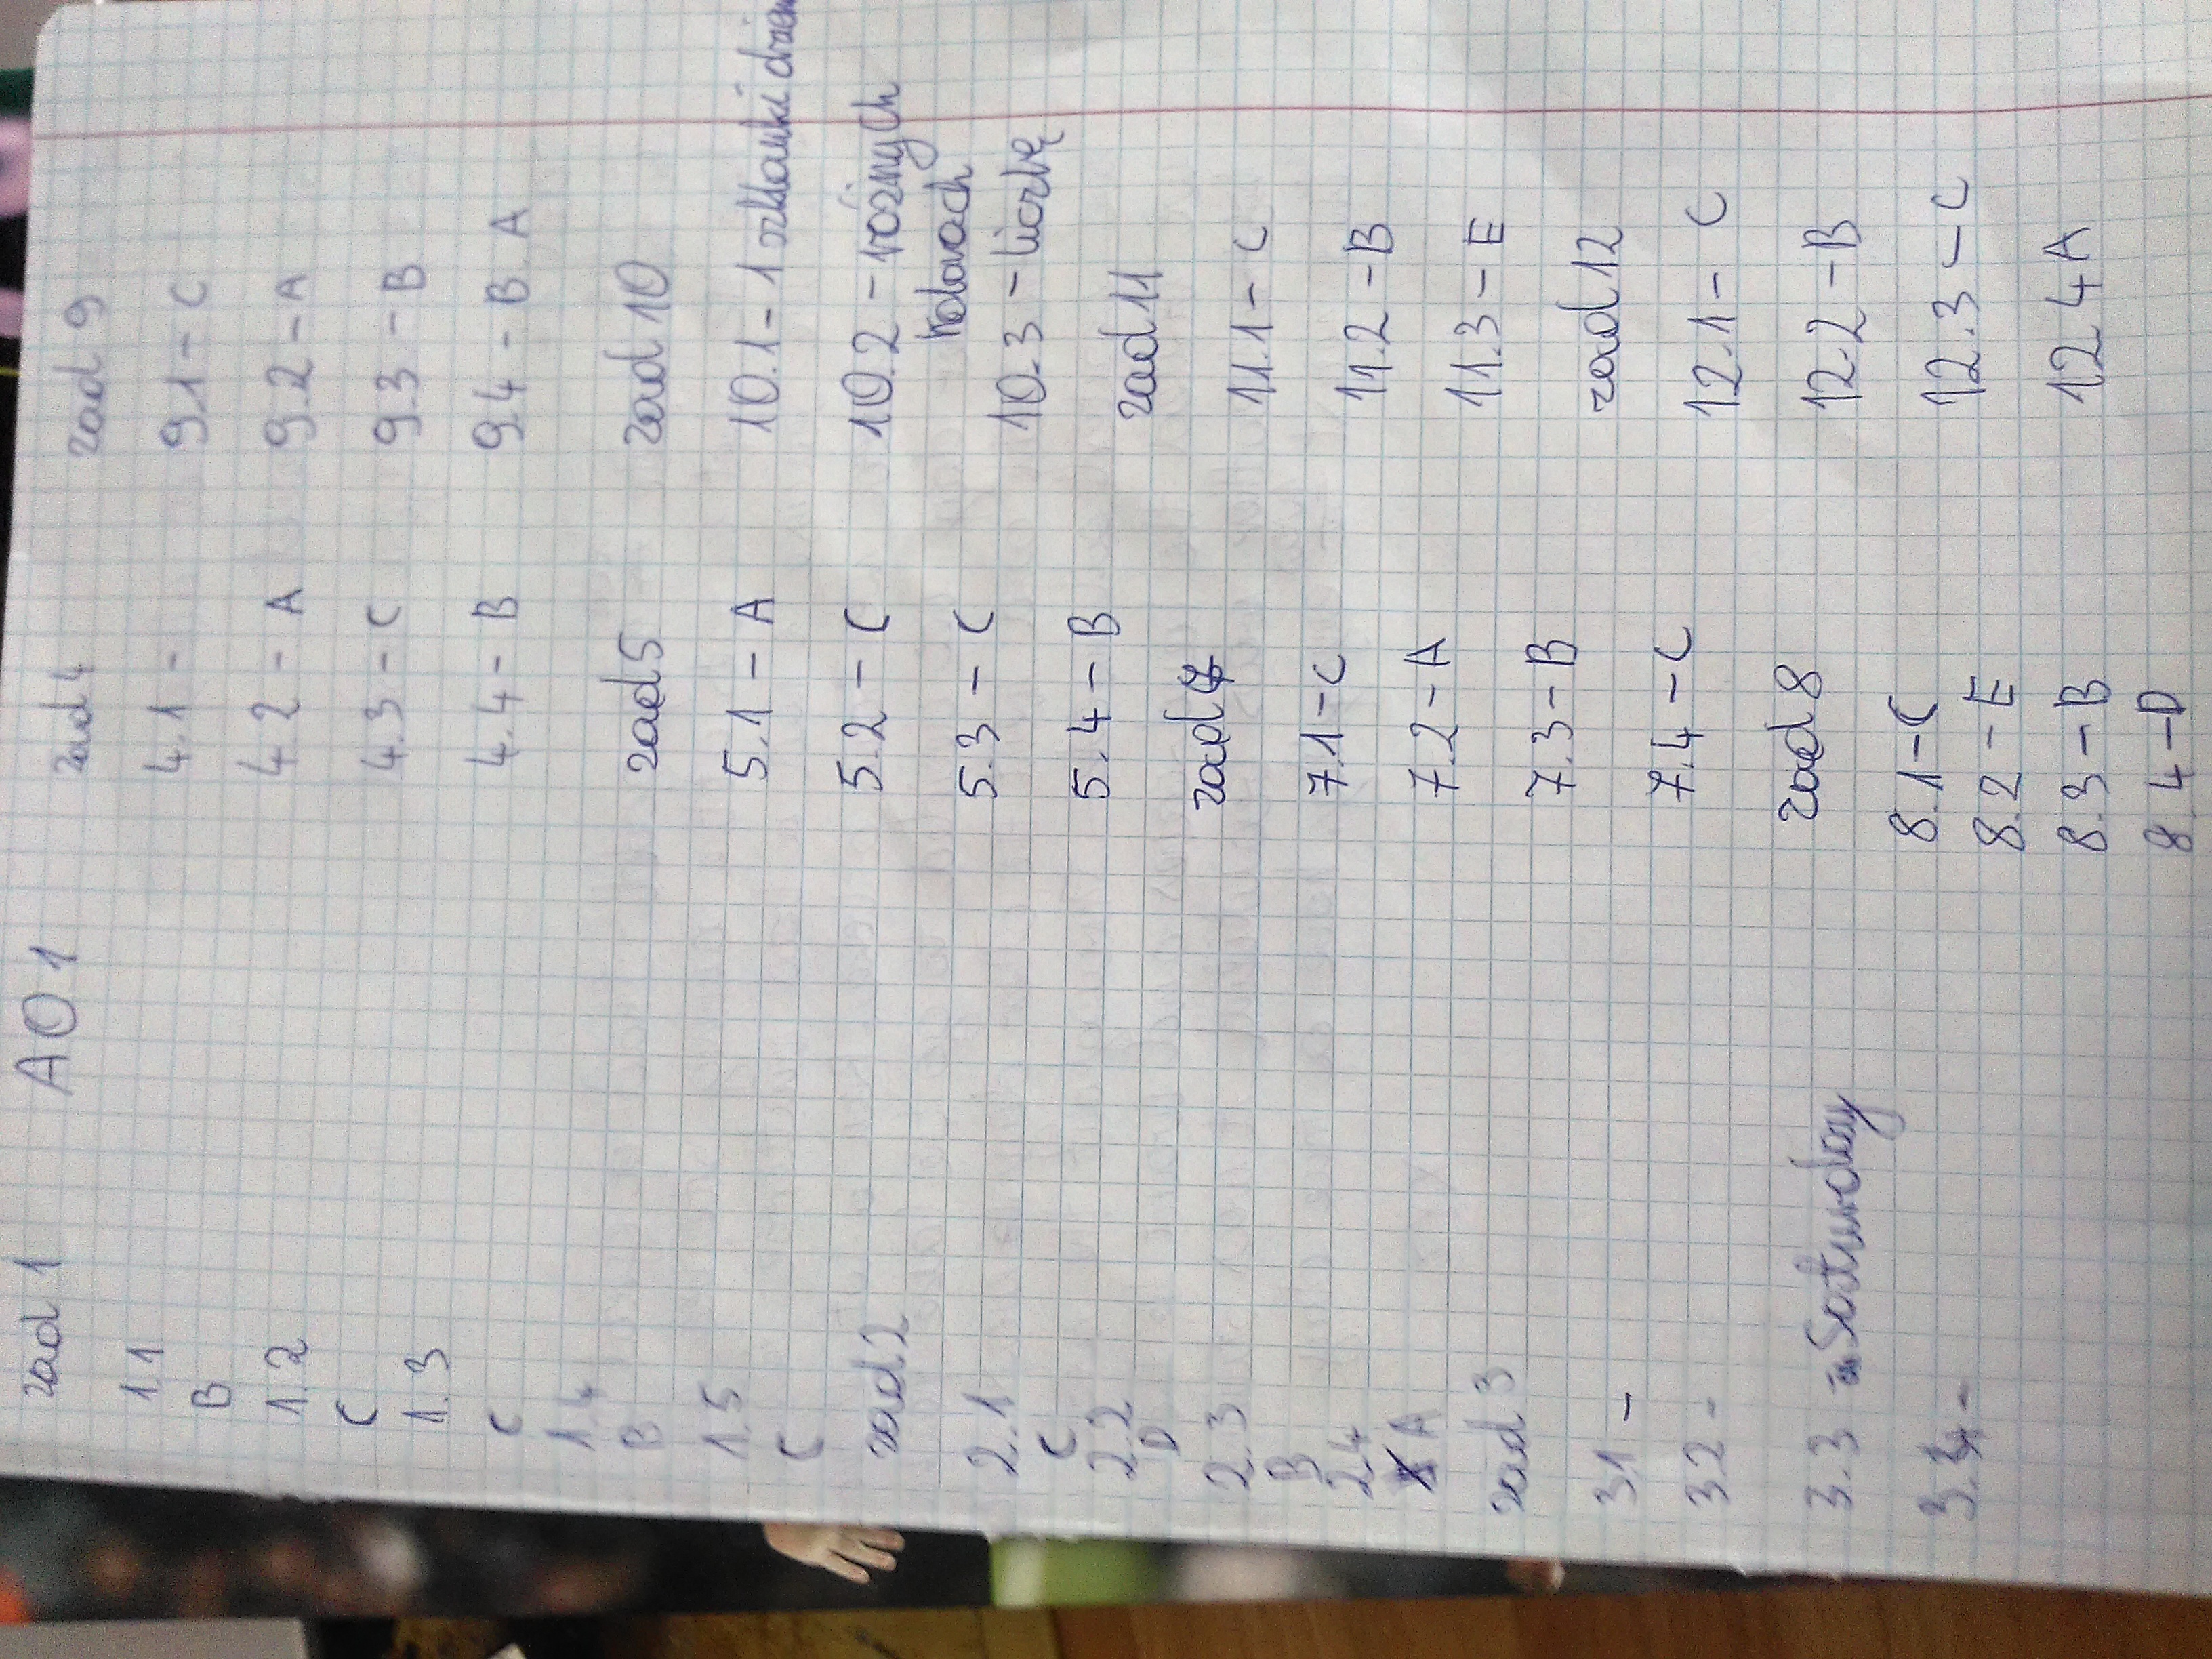 zad 1
A01
1.1
B
1.2
C
1.3
C
1.4
B
1.5
C
zad 2
2.1
C
2.2
D
2.3
B
2.4
A
zad 3
3.1 -
3.2 -
3.3 - Saturday
3.4 -
zad 4
4.1 -
4.2 - A
4.3 - C
4.4 - B
zad 5
5.1 - A
5.2 - C
5.3 - C
5.4 - B
zad 7
7.1 - C
7.2 - A
7.3 - B
7.4 - C
zad 8
8.1 - C
8.2 - E
8.3 - B
8.4 - D
zad 9
9.1 - C
9.2 - A
9.3 - B
9.4 - B A
zad 10
10.1 - 1 szklanki
10.2 - różnych
kolorach
10.3 - liczbę
zad 11
11.1 - C
11.2 - B
11.3 - E
zad 12
12.1 - C
12.2 - B
12.3 - C
12 4 A